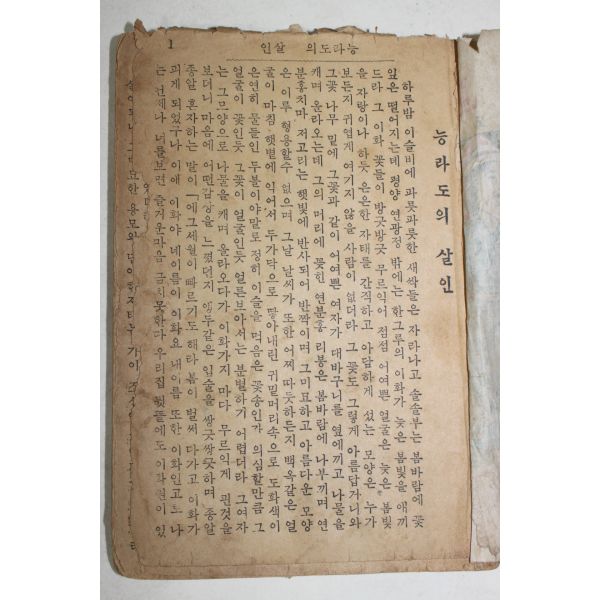 능라도의 살인 1
능라도의 살인
하루밤 이슬비에 파릇파릇한 새싹들은 자라나고 솔솔부는 봄바람에 꽃
잎은 떨어지는데 평양 연광정 밖에는 한그루의 이화가 늦은 봄빛을 애끼
드라 그 이화 꽃들이 방긋방긋 무르익어 점점 어여쁜 얼굴은 늦은 봄빛
을 자랑이나 하듯 은은한 자태를 간직하고 아담하게 섰는 모양은 누가
보든지 귀엽게 여기지 않을 사람이 없더라 그 꽃도 그렇게 아름답거니와
그꽃 나무 밑에 그꽃과 같이 어여쁜 여자가 대바구니를 옆에끼고 나물을
캐며 올라오는데 그의 머리에 꽂힌 연분홍 리봉은 봄바람에 나부끼며 연
분홍치마 저고리는 햇빛에 반사되어 반짝이며 그미묘하고 아름다운 모양
은 이루 형용할수 없으며 그날 날씨가 또한 어찌 따듯하든지 백옥같은 얼
굴이 마침 햇볕에 익어서 두가닥으로 땋아내린 귀밑머리속으로 도화색이
은연히 물들인 두볼이야말로 정히 이슬을 먹음은 꽃송인가 의심할만큼 그
얼굴이 꽃인듯 그꽃이 얼굴인듯 얼른보아서는 분별하기 어렵더라 그여자
는 그모양으로 나물을 캐며 올라오다가 이화가지 마다 무르익게 핀것을
보더니 마음에 어떤감상을 느꼈던지 앵두같은 입술을 쌍긋쌍긋하며 종알
종알 혼자하는 말이 「에그세월이 빠르기도 해라 봄이 벌써 다가고 이화가
피게 되었구나 이애 이화야 네이름이 이화요 내이름 또한 나
는 언제나 너를보면 즐거운마음 금치못한다 우리집 뒷뜰에도 이화원이 있